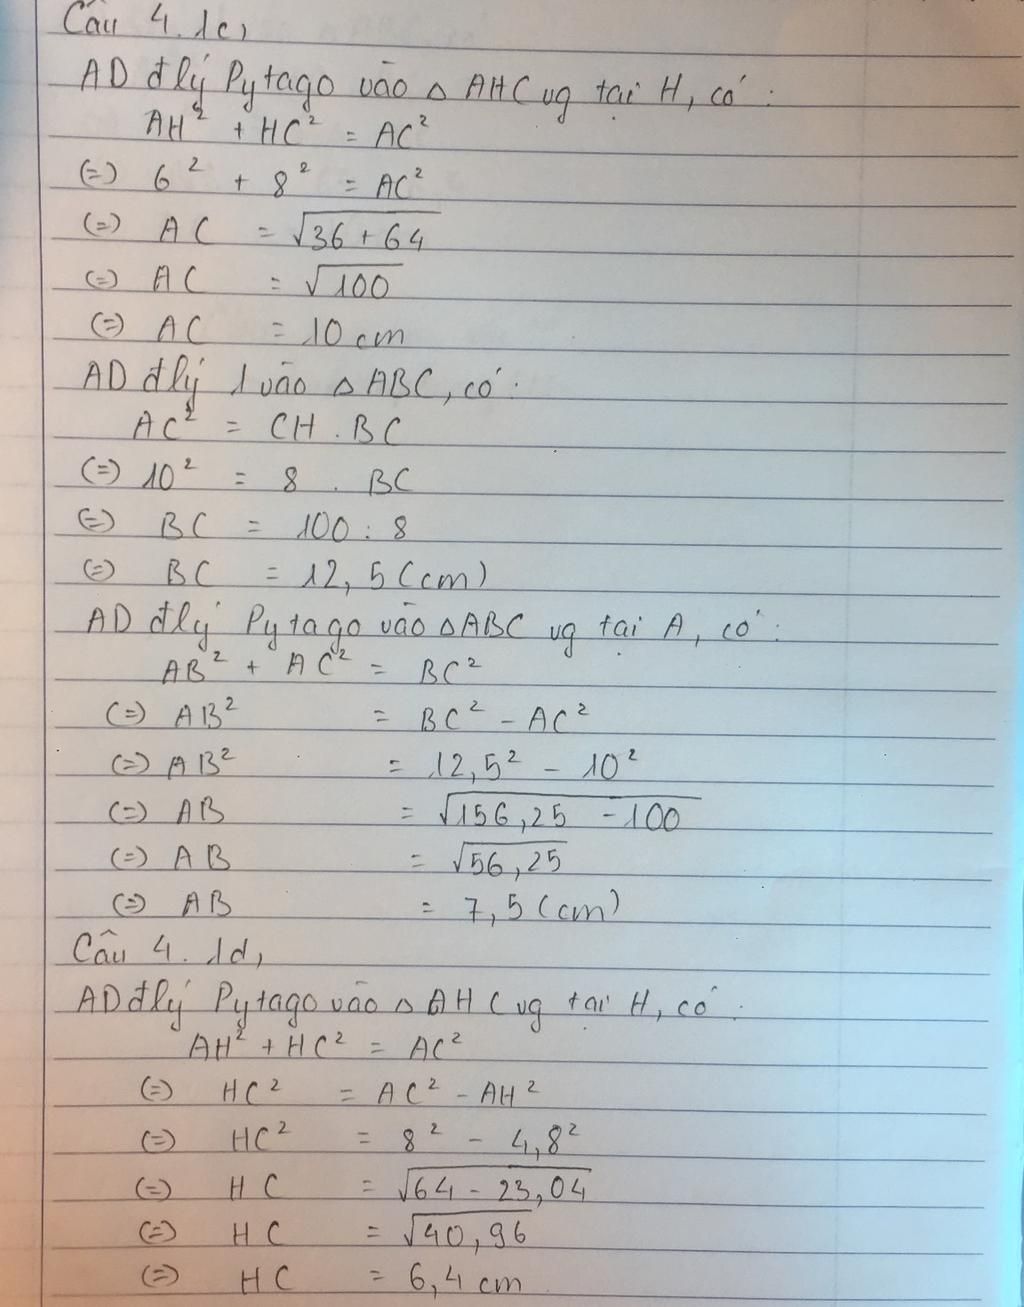 Câu 4.1c,
AD đlý Pytago vào △ AHC vg tại H, có :
AH² + HC² = AC²
(=) 6² + 8² = AC²
(=) AC = √36 + 64
(=) AC = √100
(=) AC = 10 cm
AD đlý 1 vào △ ABC, có :
AC² = CH . BC
(=) 10² = 8 . BC
(=) BC = 100 : 8
(=) BC = 12,5 (cm)
AD đlý Pytago vào △ABC vg tại A, có :
AB² + AC² = BC²
(=) AB² = BC² - AC²
(=) AB² = 12,5² - 10²
(=) AB = √156,25 - 100
(=) AB = √56,25
(=) AB = 7,5 (cm)
Câu 4.1d,
AD đlý Pytago vào △ AHC vg tại H, có :
AH² + HC² = AC²
(=) HC² = AC² - AH²
(=) HC² = 8² - 4,8²
(=) HC = √64 - 23,04
(=) HC = √40,96
(=) HC = 6,4 cm